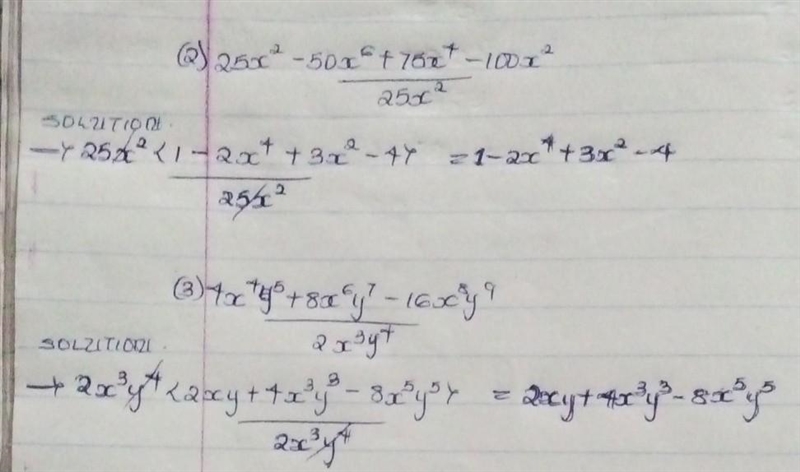 (2) 25x² - 50x⁶ + 75x⁴ - 100x²
25x²
SOLUTION.
→ 25x² < 1 - 2x⁴ + 3x² - 4 > = 1 - 2x⁴ + 3x² - 4
25x²
(3) 4x⁴y⁵ + 8x⁶y⁷ - 16x⁸y⁹
2x³y⁴
SOLUTION.
→ 2x³y⁴ < 2xy + 4x³y³ - 8x⁵y⁵ > = 2xy + 4x³y³ - 8x⁵y⁵
2x³y⁴